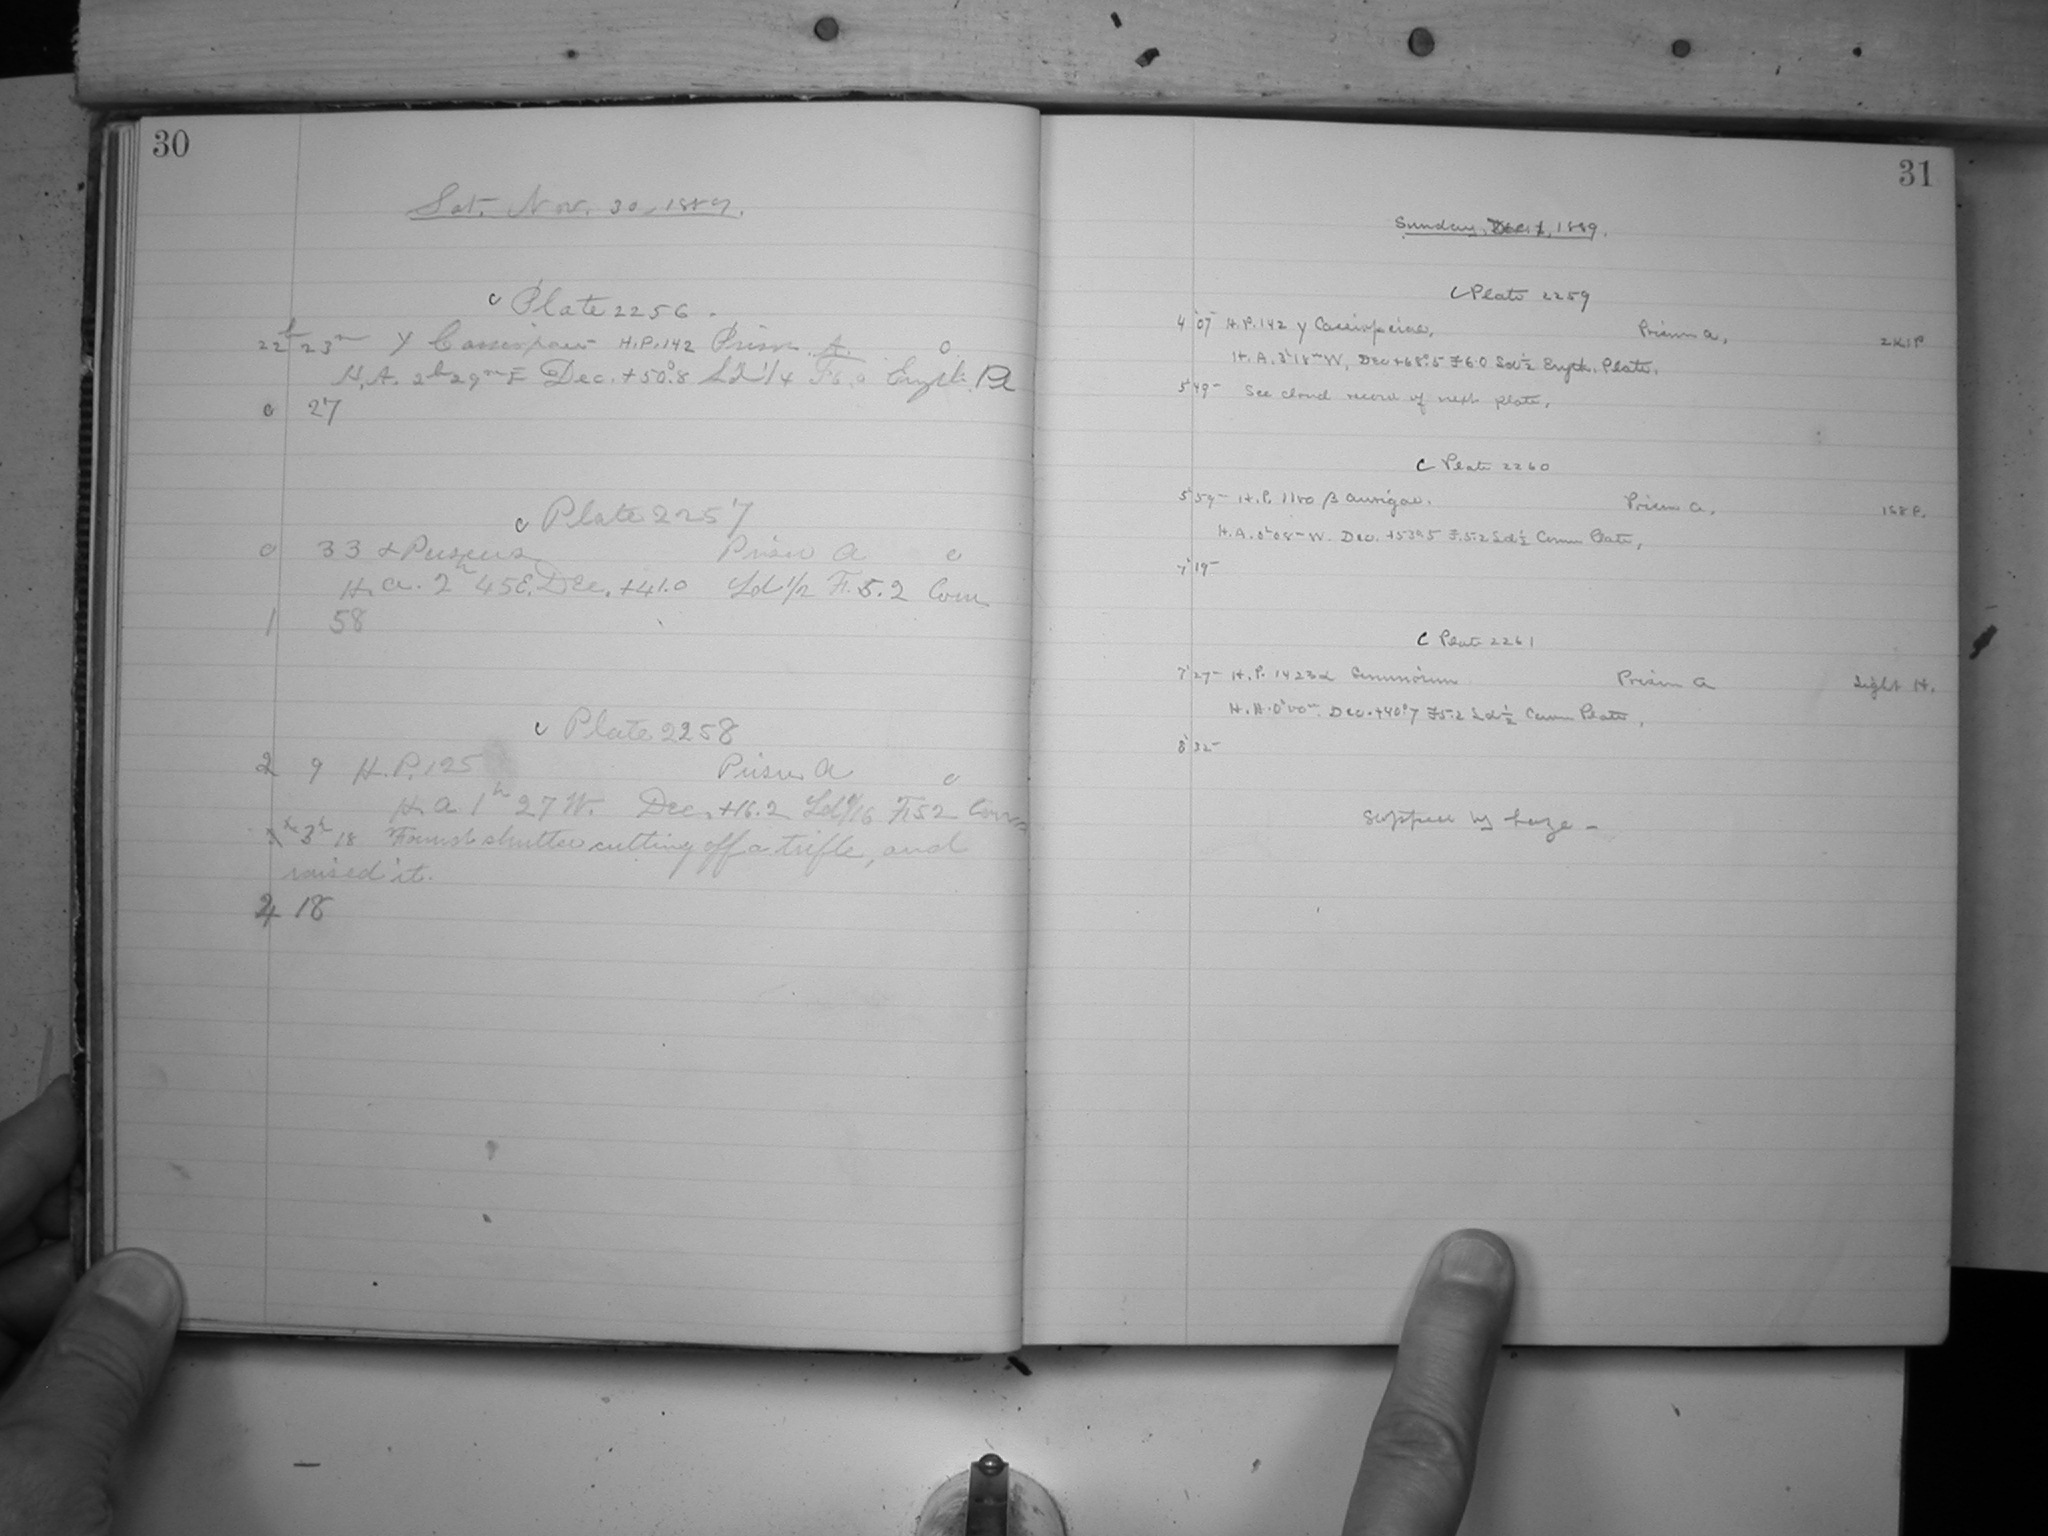 30
Sat. Nov. 30, 1889.
c Plate 2256.
22h 23m γ Cassiopeiae H.P. 142 Prism A. 0
H.A. 2h 29m E Dec. +50°.8 Sd 1/4 F5.0 Eryth. Pl
0 27
c Plate 2257
0 33 α Perseus Prism A 0
H.A. 2h 45 E. Dec. +41.0 Sd 1/2 F. 5.2 Com
1 58
c Plate 2258
2 9 H.P. 125 Prism A 0
H.A 1h 27 W. Dec. +16.2 F. 52 Com
3h 18 Found shutter cutting off a trifle, and
raised it.
4 18
31
Sunday, Dec. 1, 1889.
C Plate 2259
4 07 H.P. 142 γ Cassiopeiae, Prism A,
H.A. 3h 18m W, Dec +68°.5 F6.0 Sd 1/2 Eryth. Plate.
5 49 See cloud record of next plate.
C Plate 2260
5 59 H.P. 1180 β Aurigae. Prism A. 168 P.
H.A. 0h 08m W. Dec. +53°.5 F.5.2 Sd 1/2 Comm Plate,
7 19
C Plate 2261
7 27 H.P. 1423 α Geminorum Prism A Light H.
H.A. 0h 00m. Dec. +40°.7 F5.2 Sd 1/2 Comm Plate,
8 32
Stopped by haze –